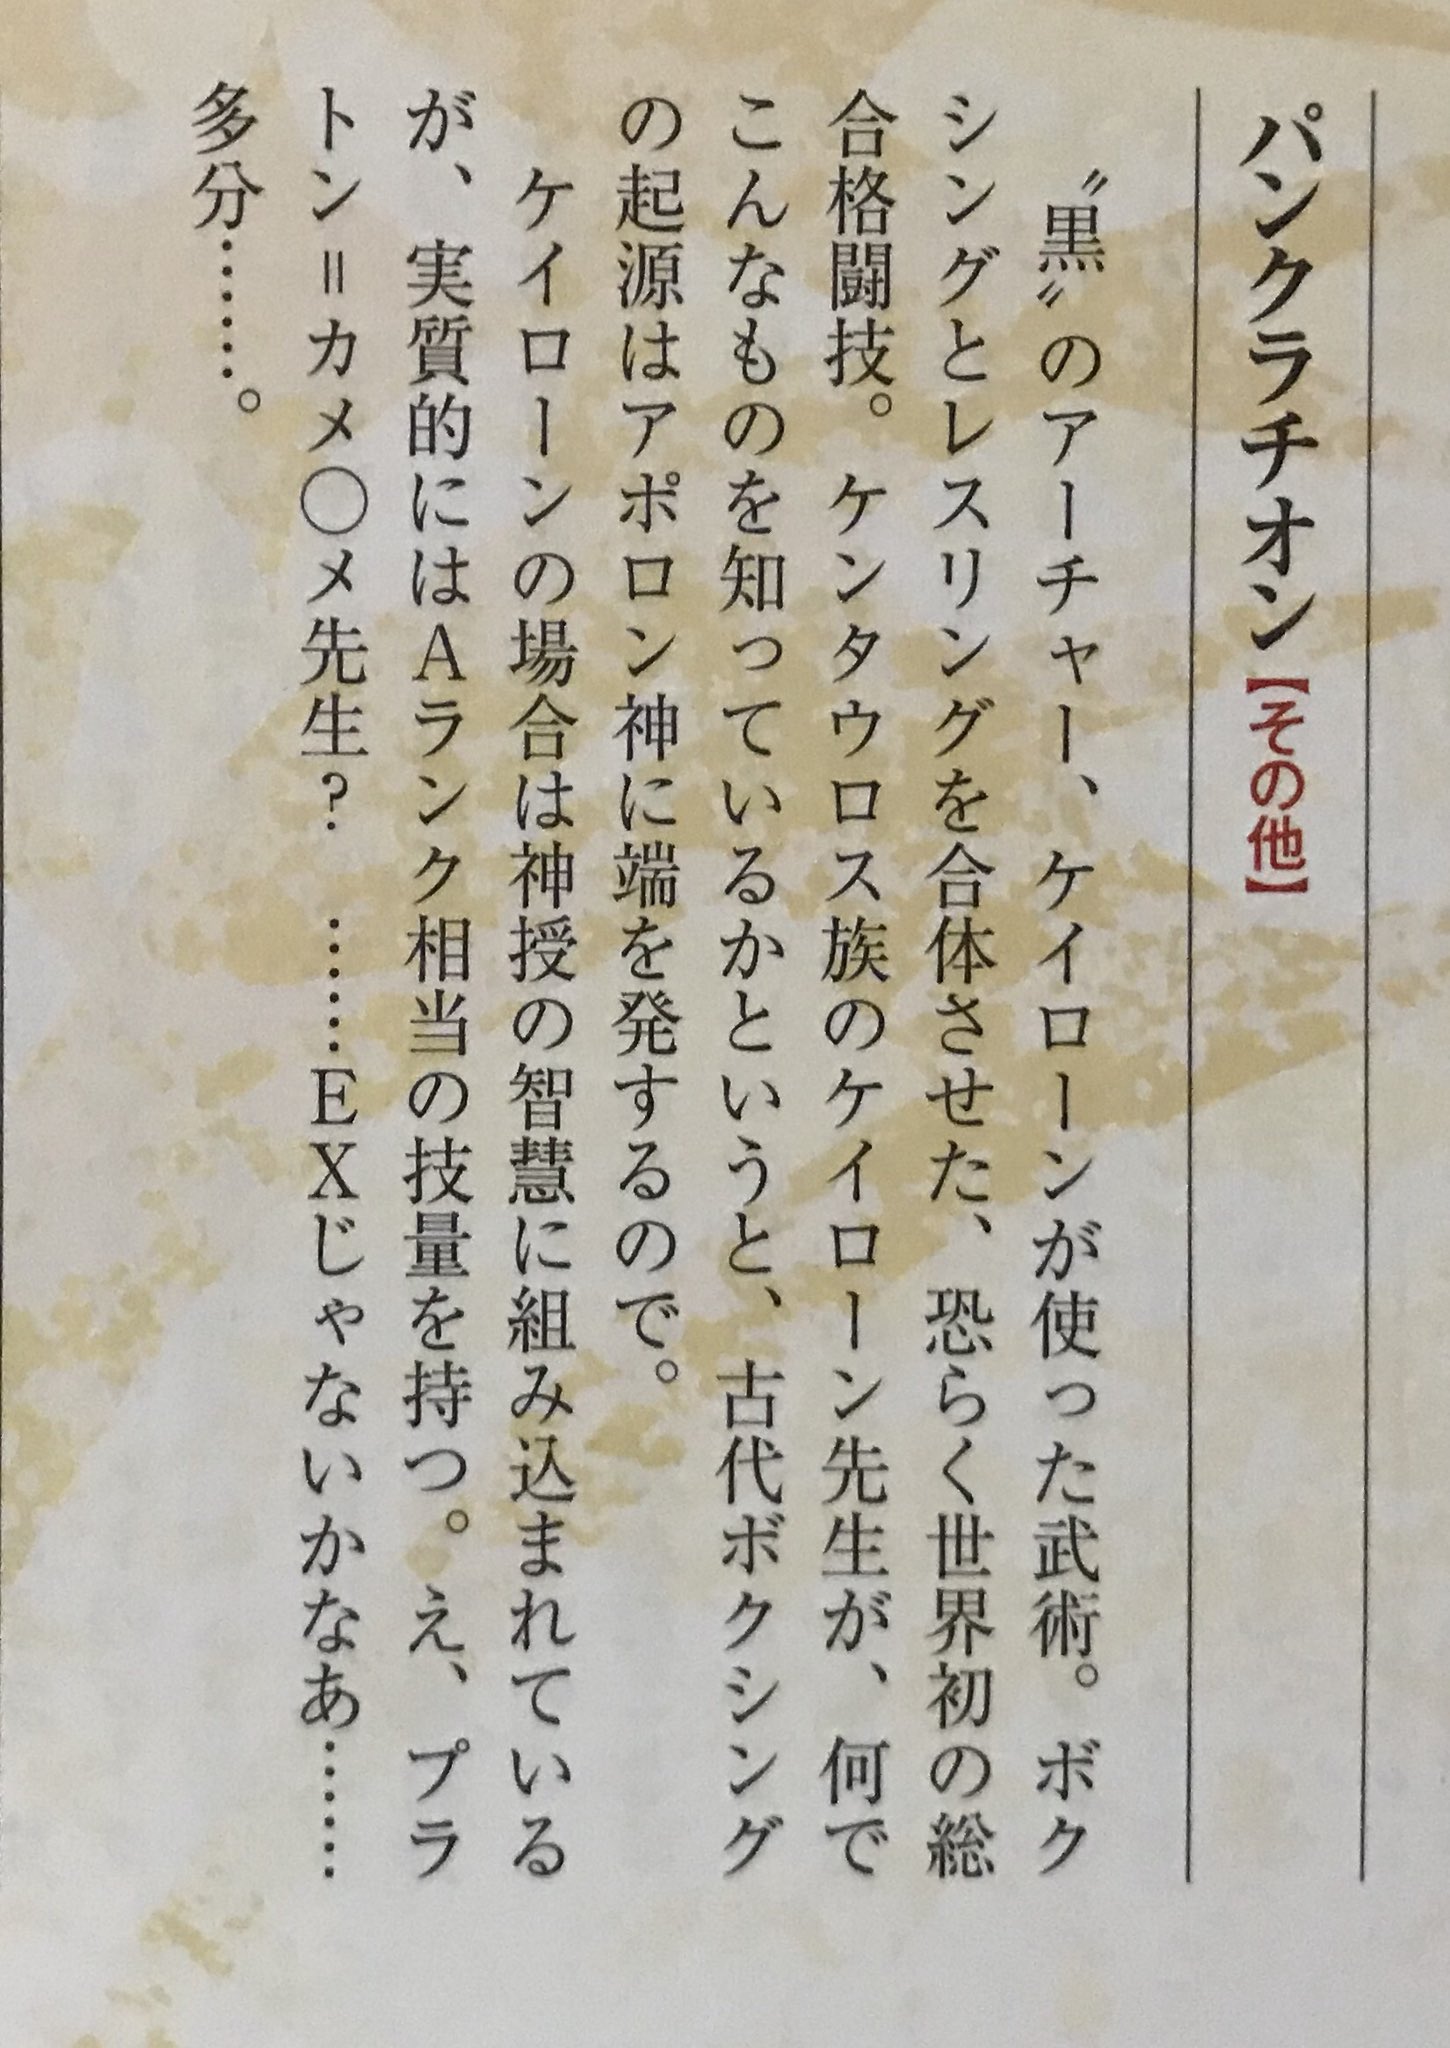 パンクラチオン【その他】
〝黒〟のアーチャー、ケイローンが使った武術。ボク
シングとレスリングを合体させた、恐らく世界初の総
合格闘技。ケンタウロス族のケイローン先生が、何で
こんなものを知っているかというと、古代ボクシング
の起源はアポロン神に端を発するので。
ケイローンの場合は神授の智慧に組み込まれている
が、実質的にはAランク相当の技量を持つ。え、プラ
トン＝カメ〇メ先生？　……EXじゃないかなあ……
多分……。